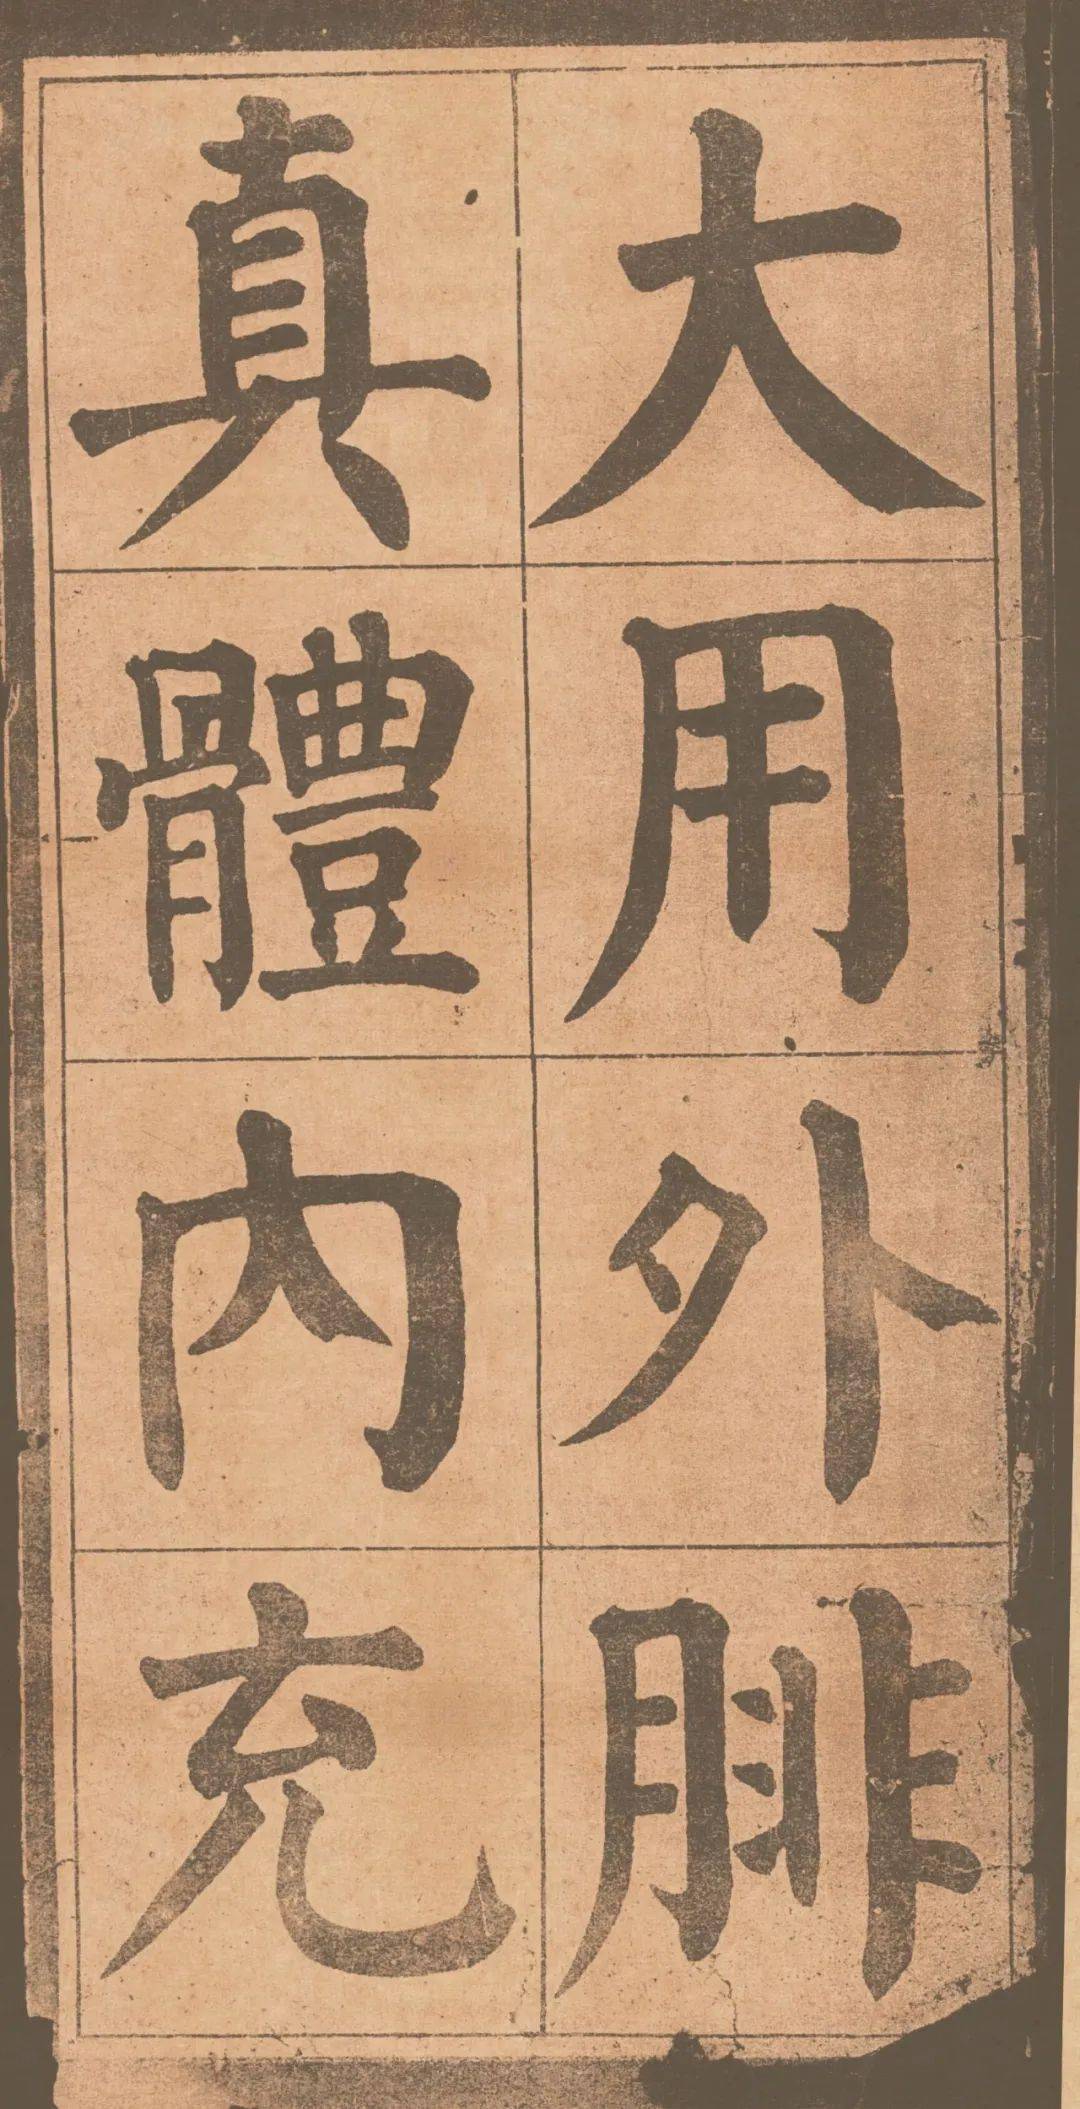 大用外腓
真體內充